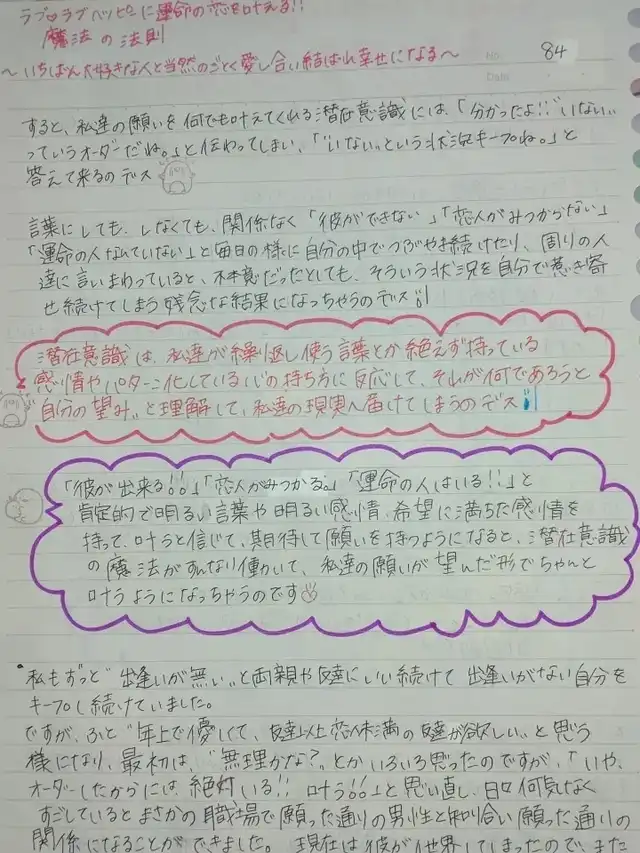 ラブラブハッピーに運命の恋を叶える!!
魔法の法則
～いちばん大好きな人と当然のごとく愛し合い結ばれ幸せになる～
No.
84
Date
すると、私達の願いを何でも叶えてくれる潜在意識には、「分かったよ!! "いない"
っていうオーダーだね。」と伝わってしまい、「"いない"という状況キープね。」と
答えて来るのデス
言葉にしても、しなくても、関係なく「彼ができない」「恋人がみつからない」
「運命の人なんていない」と毎日の様に自分の中でつぶやき続けたり、周りの人
達に言いまわっていると、不本意だったとしても、そういう状況を自分で惹き寄
せ続けてしまう残念な結果になっちゃうのデス!!
潜在意識は、私達が繰り返し使う言葉とか絶えず持っている
感情やパターン化している心の持ち方に反応して、それが何であろうと
"自分の望み"と理解して、私達の現実へ届けてしまうのデス!!
「彼が出来る!!」「恋人がみつかる。」「運命の人はいる!!」と
肯定的で明るい言葉や明るい感情、希望に満ちた感情を
持って、叶うと信じて、期待して願いを持つようになると、潜在意識
の魔法がすんなり働いて、私達の願いが望んだ形でちゃんと
叶うようになっちゃうのです
"私もずっと"出逢いが無い"と両親や友達にいい続けて出逢いがない自分を
キープし続けていました。
ですが、ふと"年上で優しくて、友達以上恋人未満の友達が欲しい"と思う
様になり、最初は、"無理かな?"とかいろいろ思ったのですが、「いや、
オーダーしたからには、絶対いる!! 叶う!!」と思い直し、日々何気なく
すごしているとまさかの職場で願った通りの男性と知り合い願った通りの
関係になることができました。現在は彼が他界してしまったので、また